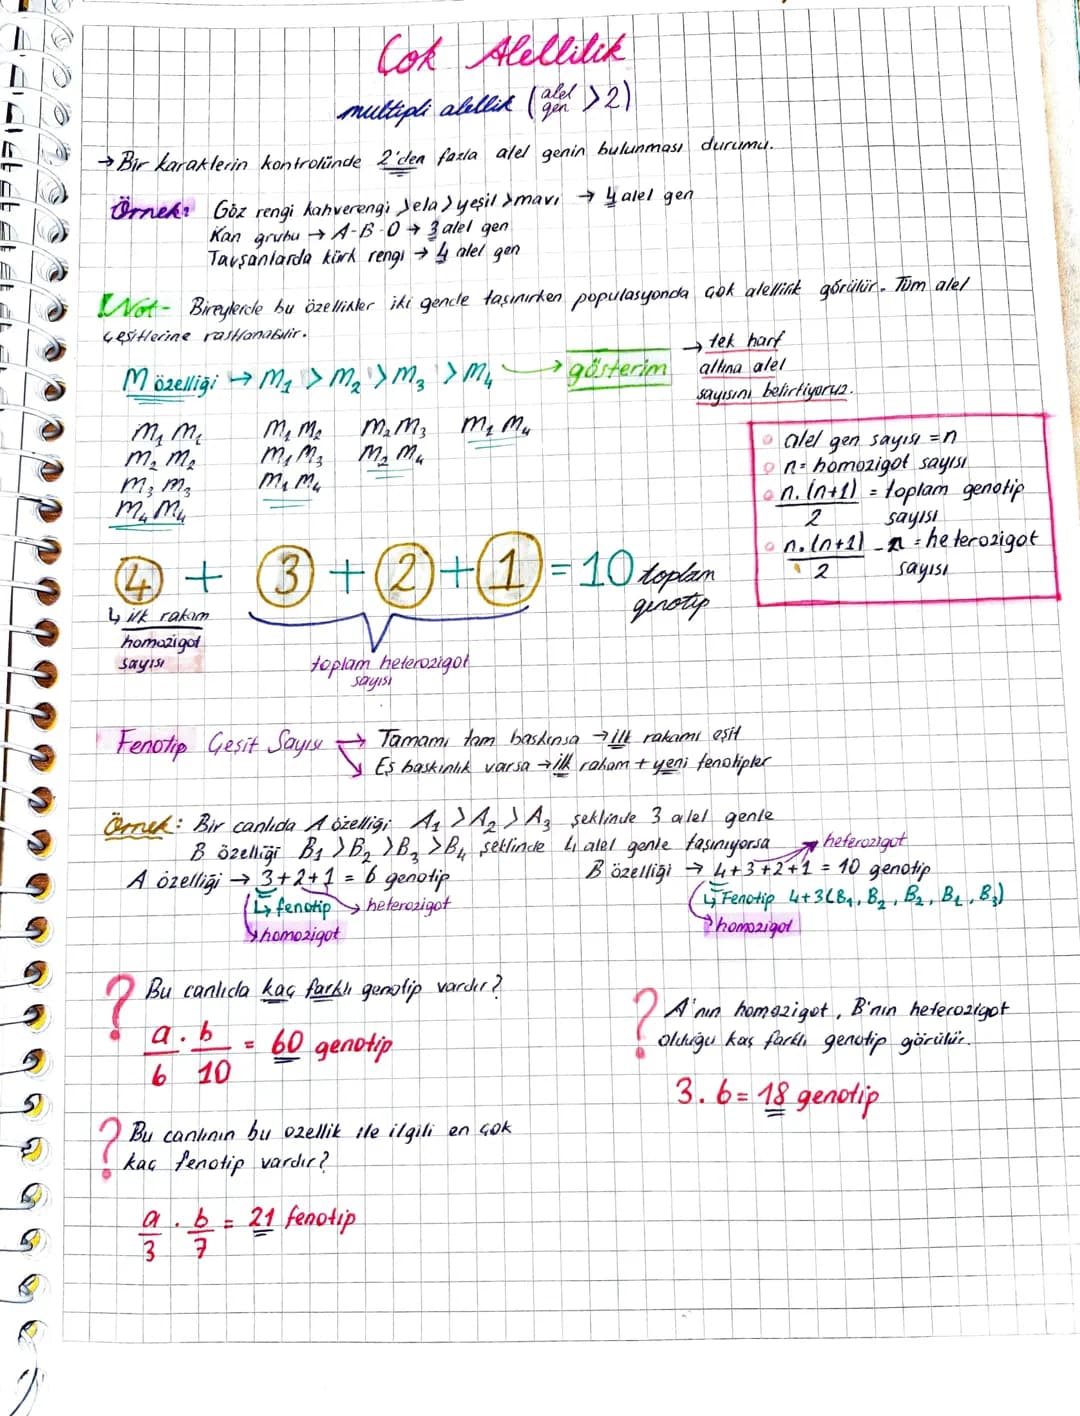 Çok Alellilik
multipli alellik (alel gen >2)
→ Bir karakterin kontrolünde 2'den fazla alel genin bulunması durumu.
Örnek: Göz rengi kahverengi >ela >yeşil >mavi → 4 alel gen
Kan grubu → A-B-O → 3 alel gen
Tavşanlarda kürk rengi → 4 alel gen
!Not- Bireylerde bu özellikler iki gende taşınırken populasyonda çok alellilik görülür. Tüm alel
çeşitlerine rastlanabilir.
M özelliği → M1 > M2 > M3 > M4 → gösterim
→ tek harf
altına alel
sayısını belirtiyoruz.
M1 M1 M1 M2 M2 M3 M3 M4
M2 M2 M1 M3 M2 M4
M3 M3 M1 M4
M4 M4
4 + 3 + 2 + 1 = 10 toplam
genotip
↳ ilk rakam
homozigot
sayısı
toplam heterozigot
sayısı
• alel gen sayısı = n
• n = homozigot sayısı
• n.(n+1)/2 = toplam genotip
sayısı
• n.(n+1)/2 - n = heterozigot
sayısı
Fenotip Çeşit Sayısı → Tamamı tam baskınsa → ilk rakamı eşit
↘ Eş baskınlık varsa → ilk rakam + yeni fenotipler
Örnek: Bir canlıda A özelliği A1 > A2 > A3 şeklinde 3 alel genle
B özelliği B1 > B2 > B3 > B4 şeklinde 4 alel genle taşınıyorsa
A özelliği → 3+2+1 = 6 genotip
↳ fenotip → heterozigot
↳ homozigot
heterozigot
B özelliği → 4+3+2+1 = 10 genotip
↳ Fenotip 4+3(B1, B2, B2, B1, B3)
homozigot
? Bu canlıda kaç farklı genotip vardır?
a/6 . b/10 = 60 genotip
? A'nın homozigot, B'nın heterozigot
olduğu kaç farklı genotip görülür.
3. 6 = 18 genotip
? Bu canlının bu ozellik ile ilgili en çok
kaç fenotip vardır?
a/3 . b/7 = 21 fenotip